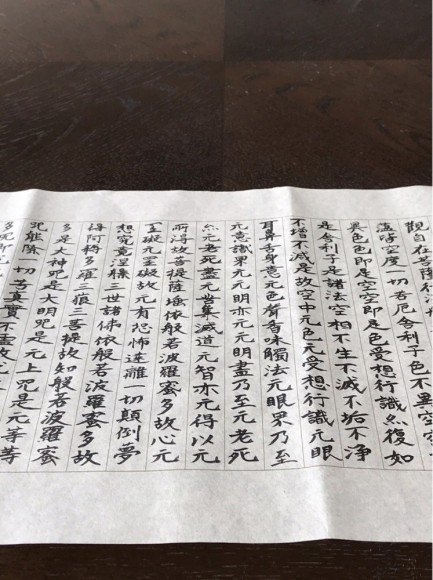 觀自在菩薩行深
蘊皆空度一切苦厄舍利子色不異空
異色色即是空空即是色受想行識亦復如
是舍利子是諸法空相不生不滅不垢不淨
不增不減是故空中无色无受想行識无眼
耳鼻舌身意无色聲香味觸法无眼界乃至
无意識界无无明亦无无明盡乃至无老死
亦无老死盡无苦集滅道无智亦无得以无
所得故菩提薩埵依般若波羅蜜多故心无
罣礙无罣礙故无有恐怖遠離一切顛倒夢
想究竟涅槃三世諸佛依般若波羅蜜多故
得阿耨多羅三藐三菩提故知般若波羅蜜
多是大神咒是大明咒是无上咒是无等等
咒能除一切苦真實不虛故
多咒即